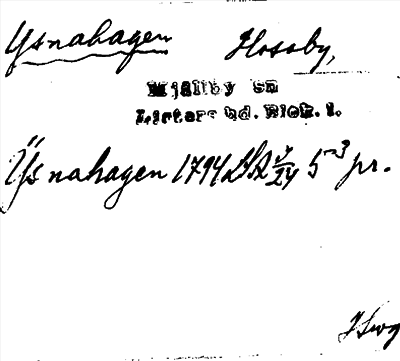 Ysnahagen Hosaby,
Mjällby sn
Listers hd. Blek. l.
Ÿsnahagen 1794 LSA 5 pr.